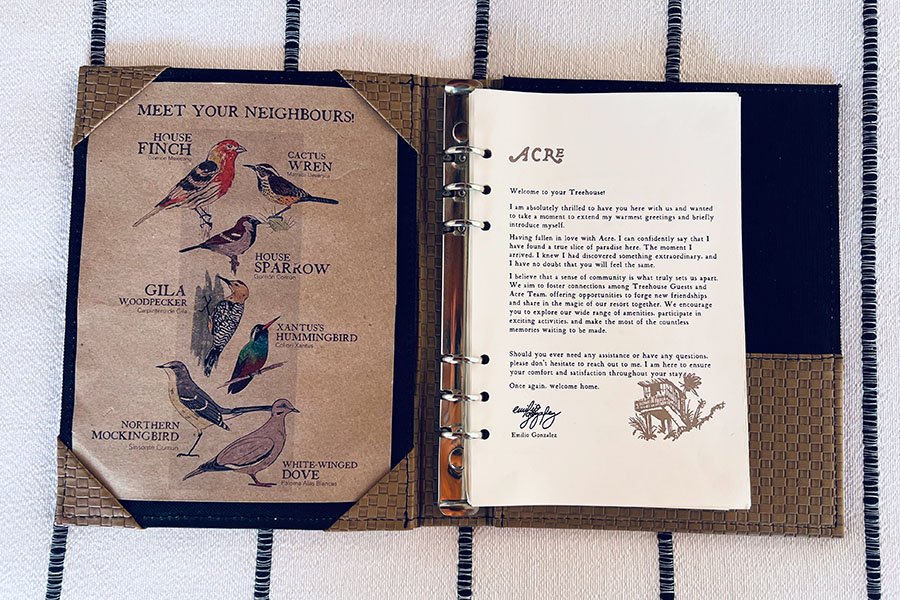 MEET YOUR NEIGHBOURS!
HOUSE
FINCH
Gorrión Mexicano
CACTUS
WREN
Matraca Desértica
HOUSE
SPARROW
Gorrión Común
GILA
WOODPECKER
Carpintero de Gila
XANTUS'S
HUMMINGBIRD
Colibrí Xantus
NORTHERN
MOCKINGBIRD
Sinsonte Común
WHITE-WINGED
DOVE
Paloma Alas Blancas
ACRE
Welcome to your Treehouse!
I am absolutely thrilled to have you here with us and wanted
to take a moment to extend my warmest greetings and briefly
introduce myself.
Having fallen in love with Acre, I can confidently say that I
have found a true slice of paradise here. The moment I
arrived, I knew I had discovered something extraordinary, and
I have no doubt that you will feel the same.
I believe that a sense of community is what truly sets us apart.
We aim to foster connections among Treehouse Guests and
Acre Team, offering opportunities to forge new friendships
and share in the magic of our resort together. We encourage
you to explore our wide range of amenities, participate in
exciting activities, and make the most of the countless
memories waiting to be made.
Should you ever need any assistance or have any questions,
please don't hesitate to reach out to me. I am here to ensure
your comfort and satisfaction throughout your stay.
Once again, welcome home.
Emilio Gonzalez